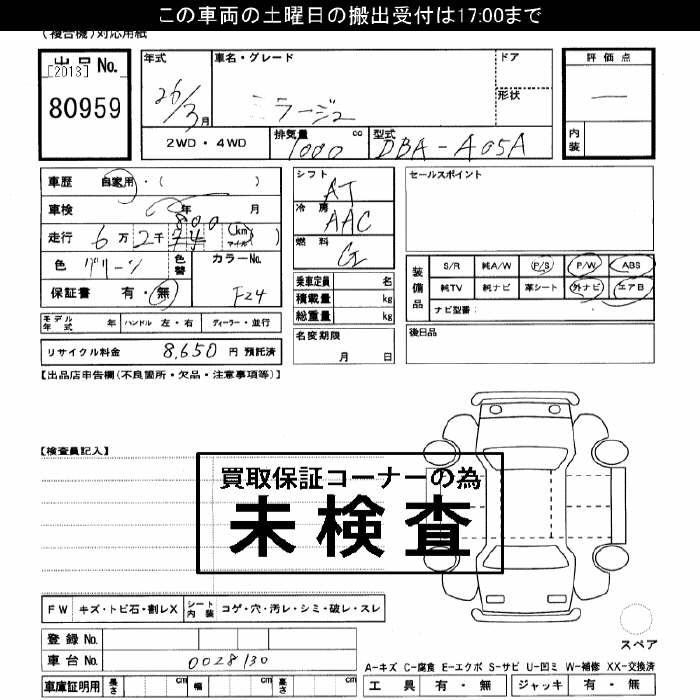 この車両の土曜日の搬出受付は17:00まで
(複合機)対応用紙
出品 No.
[2013]
80959
年式
26/3月
車名・グレード
ミラージュ
ドア
形状
評価点
—
内装
2WD・4WD
排気量 cc
1000
型式
DBA-A05A
車歴 自家用・( )
車検 年 月
走行 6万2千800 (km マイル)
色 グリーン
色替
カラーNo.
F24
保証書 有・無
シフト
AT
冷房
AAC
燃料
G
乗車定員 名
積載量 kg
総重量 kg
セールスポイント
装備品
S/R 純A/W P/S P/W ABS
純TV 純ナビ 革シート 外ナビ エアB
ナビ型番:
モデル年式 年 ハンドル 左・右 ディーラー・並行
名変期限
月 日
後日品
リサイクル料金 8,650 円 預託済
【出品店申告欄(不良箇所・欠品・注意事項等)】
【検査員記入】
買取保証コーナーの為
未検査
FW キズ・トビ石・割レX シート内装 コゲ・穴・汚レ・シミ・破レ・スレ
登録 No.
車台 No. 0028130
車庫証明用 長さ cm 幅 cm 高さ cm
スペア
A-キズ C-腐食 E-エクボ S-サビ U-凹ミ W-補修 XX-交換済
工具 有・無 ジャッキ 有・無